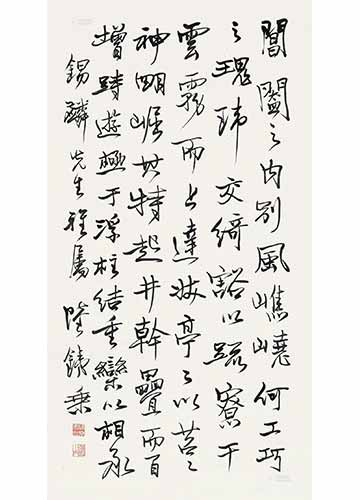 閶闔之内別風嶕嶢何工巧
之瑰瑋交綺豁以疏寮干
雲霧而上達狀亭々以苕々
神明崛其特起井幹疊而百
增跱遊極于浮柱結重欒以相承
錫麟先生雅屬 陸銕乘